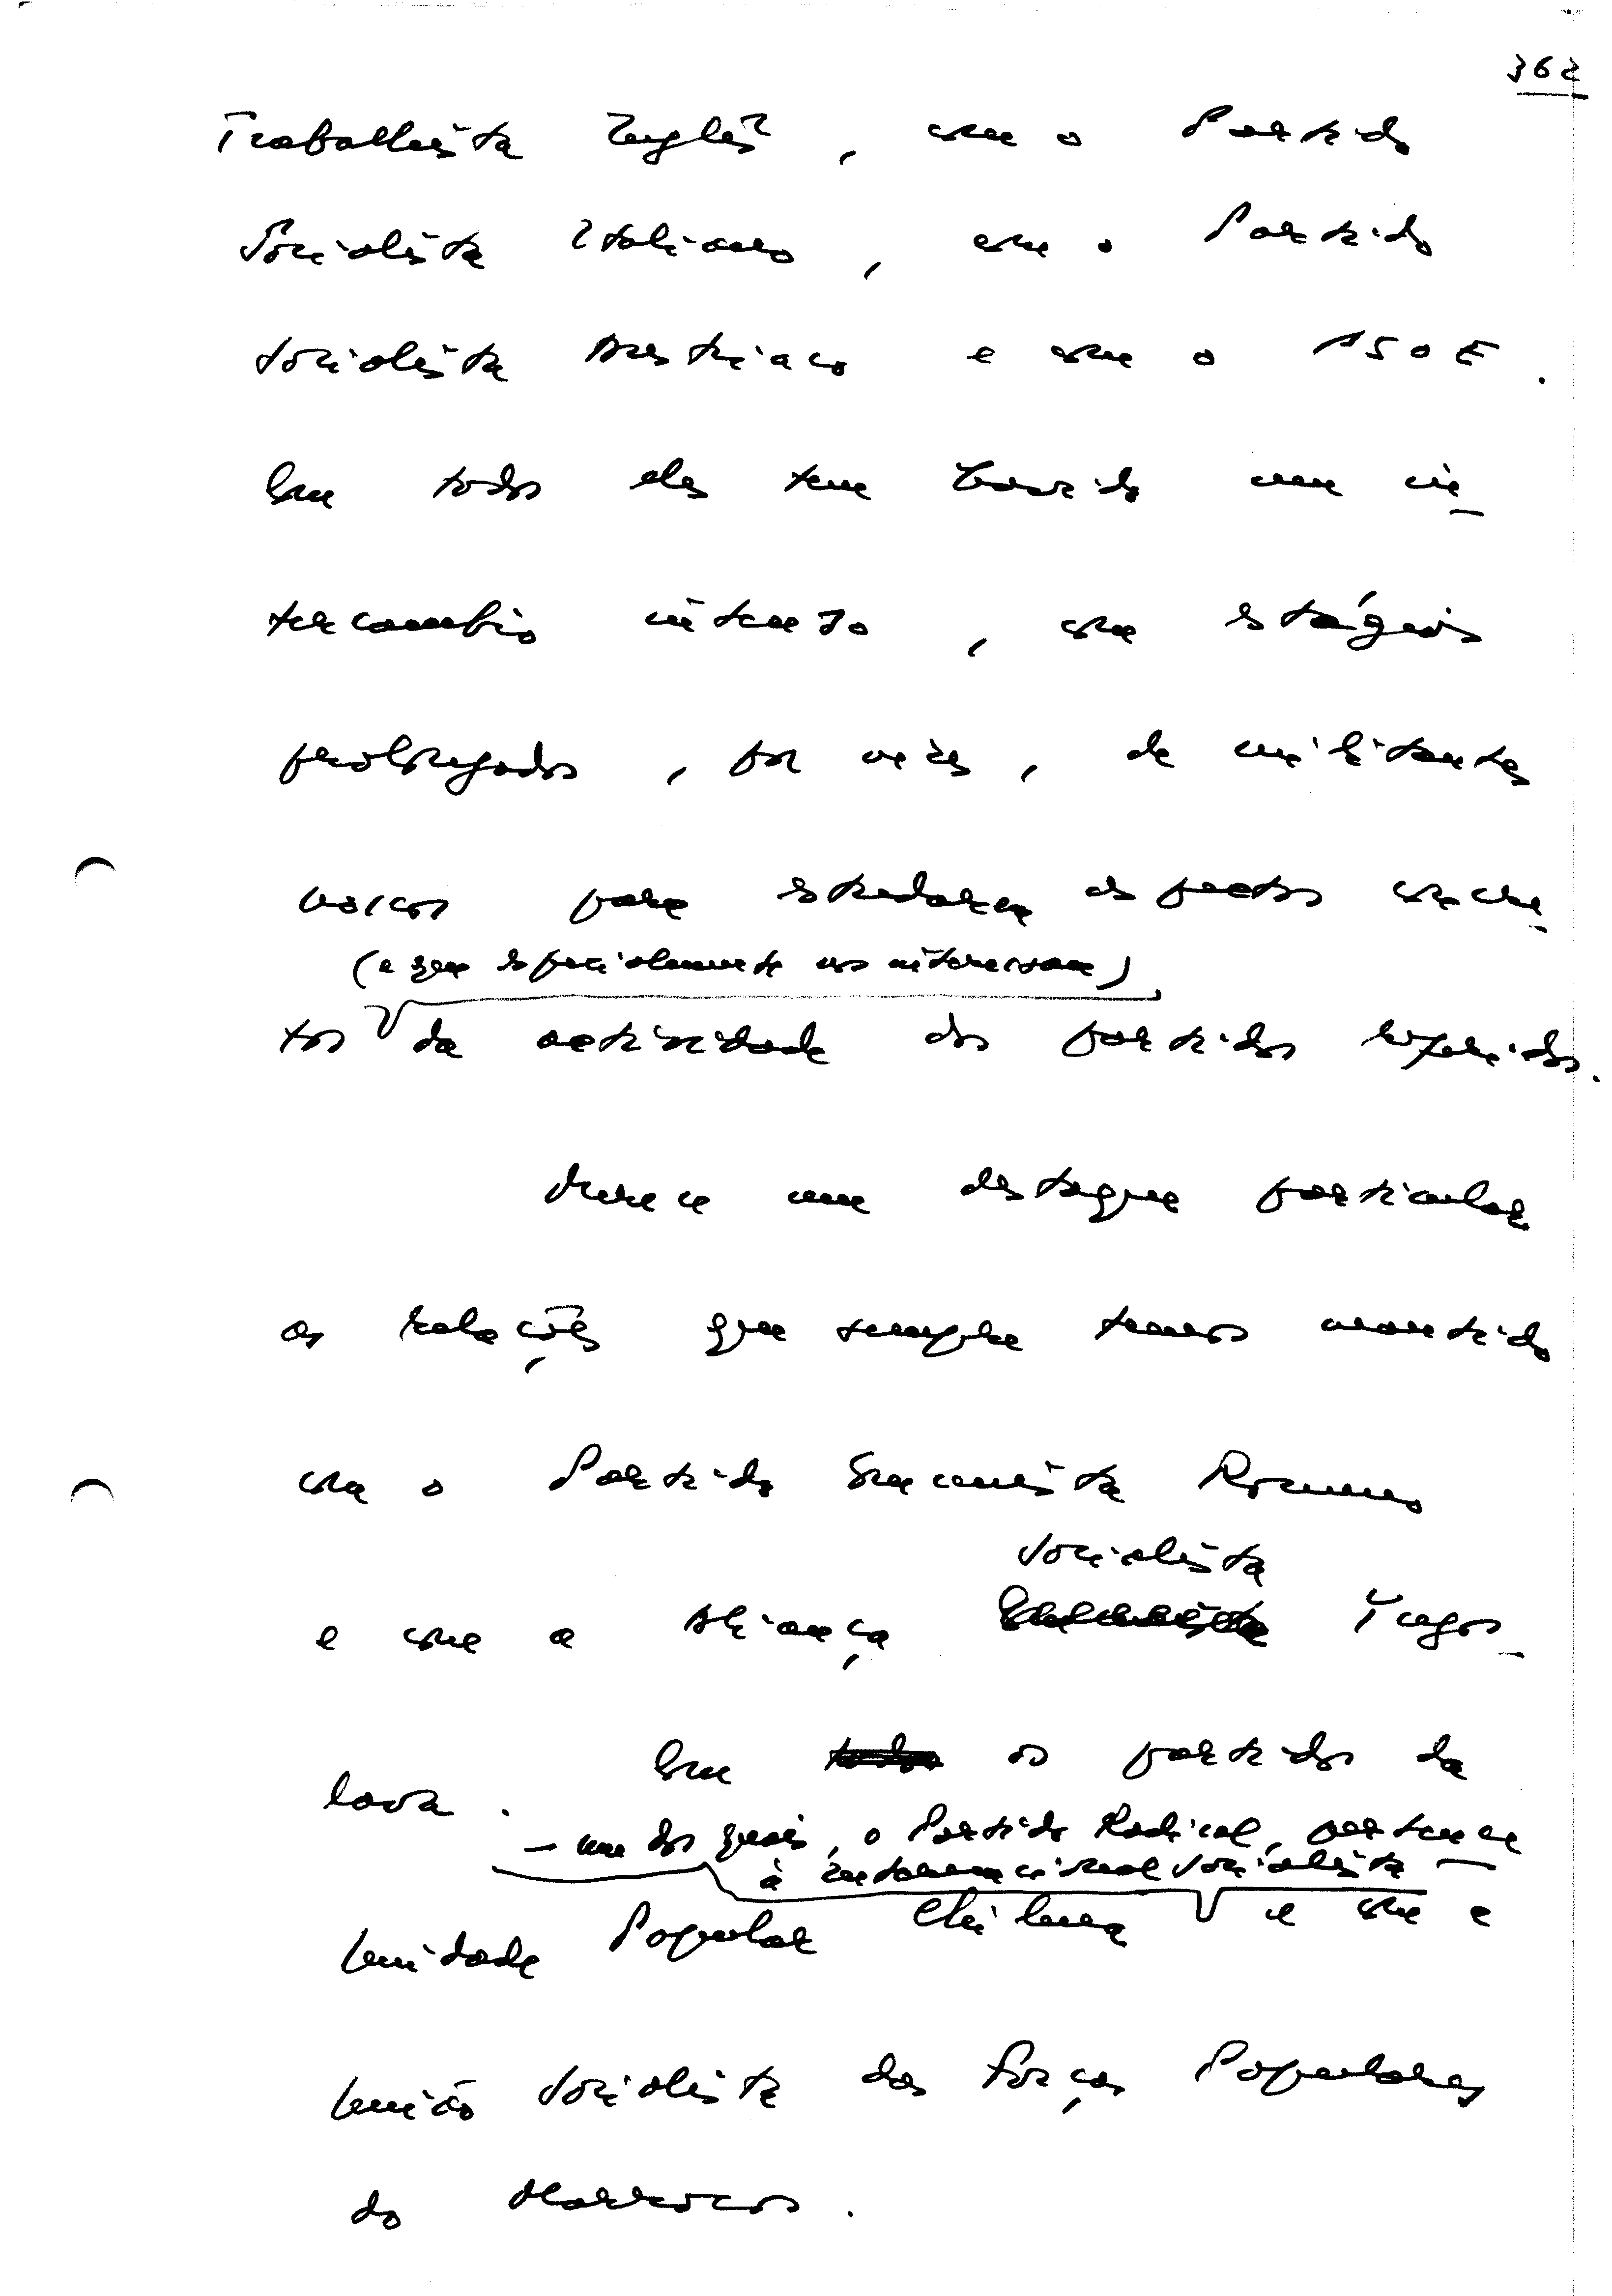 362
Trabalhista Inglês, com o Partido
Socialista Italiano, com o Partido
Socialista Austríaco e com o PSOE.
Com todos eles tem havido um in-
tercambio intenso, com estágios
prolongados, por vezes, de militantes
nossos para estudarem aspectos concre-
(e que especialmente nos interessam)
tos da actividade dos partidos referidos.
Merece um destaque particular
as relações que sempre temos mantido
com o Partido Comunista Romeno
Socialista
e com a Aliança Comunista Jugos-
lava. Com todos os partidos da
— um dos quais, o Partido Radical, pertence
à Internacional Socialista —
Unidade Popular Chilena e com a
União Socialista das Forças Populares
do Marrocos.